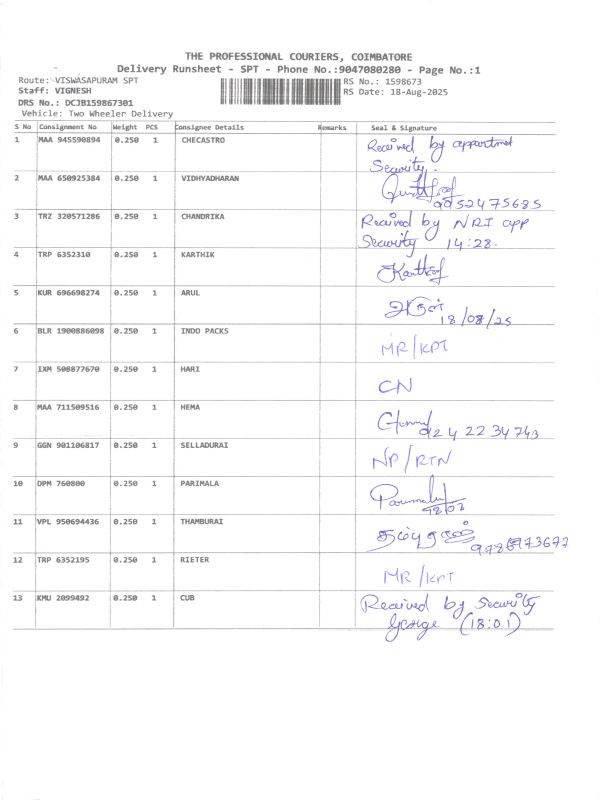 THE PROFESSIONAL COURIERS, COIMBATORE
Delivery Runsheet - SPT - Phone No.:9047080280 - Page No.:1
Route: VISWASAPURAM SPT
RS No.: 1598673
Staff: VIGNESH
RS Date: 18-Aug-2025
DRS No.: DCJB159867301
Vehicle: Two Wheeler Delivery
S No Consignment No Weight PCS Consignee Details Remarks Seal & Signature
1 MAA 945590894 0.250 1 CHECASTRO Received by appartment
Security.
2 MAA 650925384 0.250 1 VIDHYADHARAN
9952475685
3 TRZ 320571286 0.250 1 CHANDRIKA Received by NRI app
Security 14:28.
4 TRP 6352310 0.250 1 KARTHIK Karthik
5 KUR 696698274 0.250 1 ARUL அருள்
18/08/25
6 BLR 1900886098 0.250 1 INDO PACKS MR/KPT
7 IXM 508877670 0.250 1 HARI CN
8 MAA 711509516 0.250 1 HEMA
9242234743
9 GGN 901106817 0.250 1 SELLADURAI NP/RTN
10 DPM 760800 0.250 1 PARIMALA Parimala
12/02
11 VPL 950694436 0.250 1 THAMBURAI
9786973677
12 TRP 6352195 0.250 1 RIETER MR/KPT
13 KMU 2099492 0.250 1 CUB Received by Security
George (18:01)